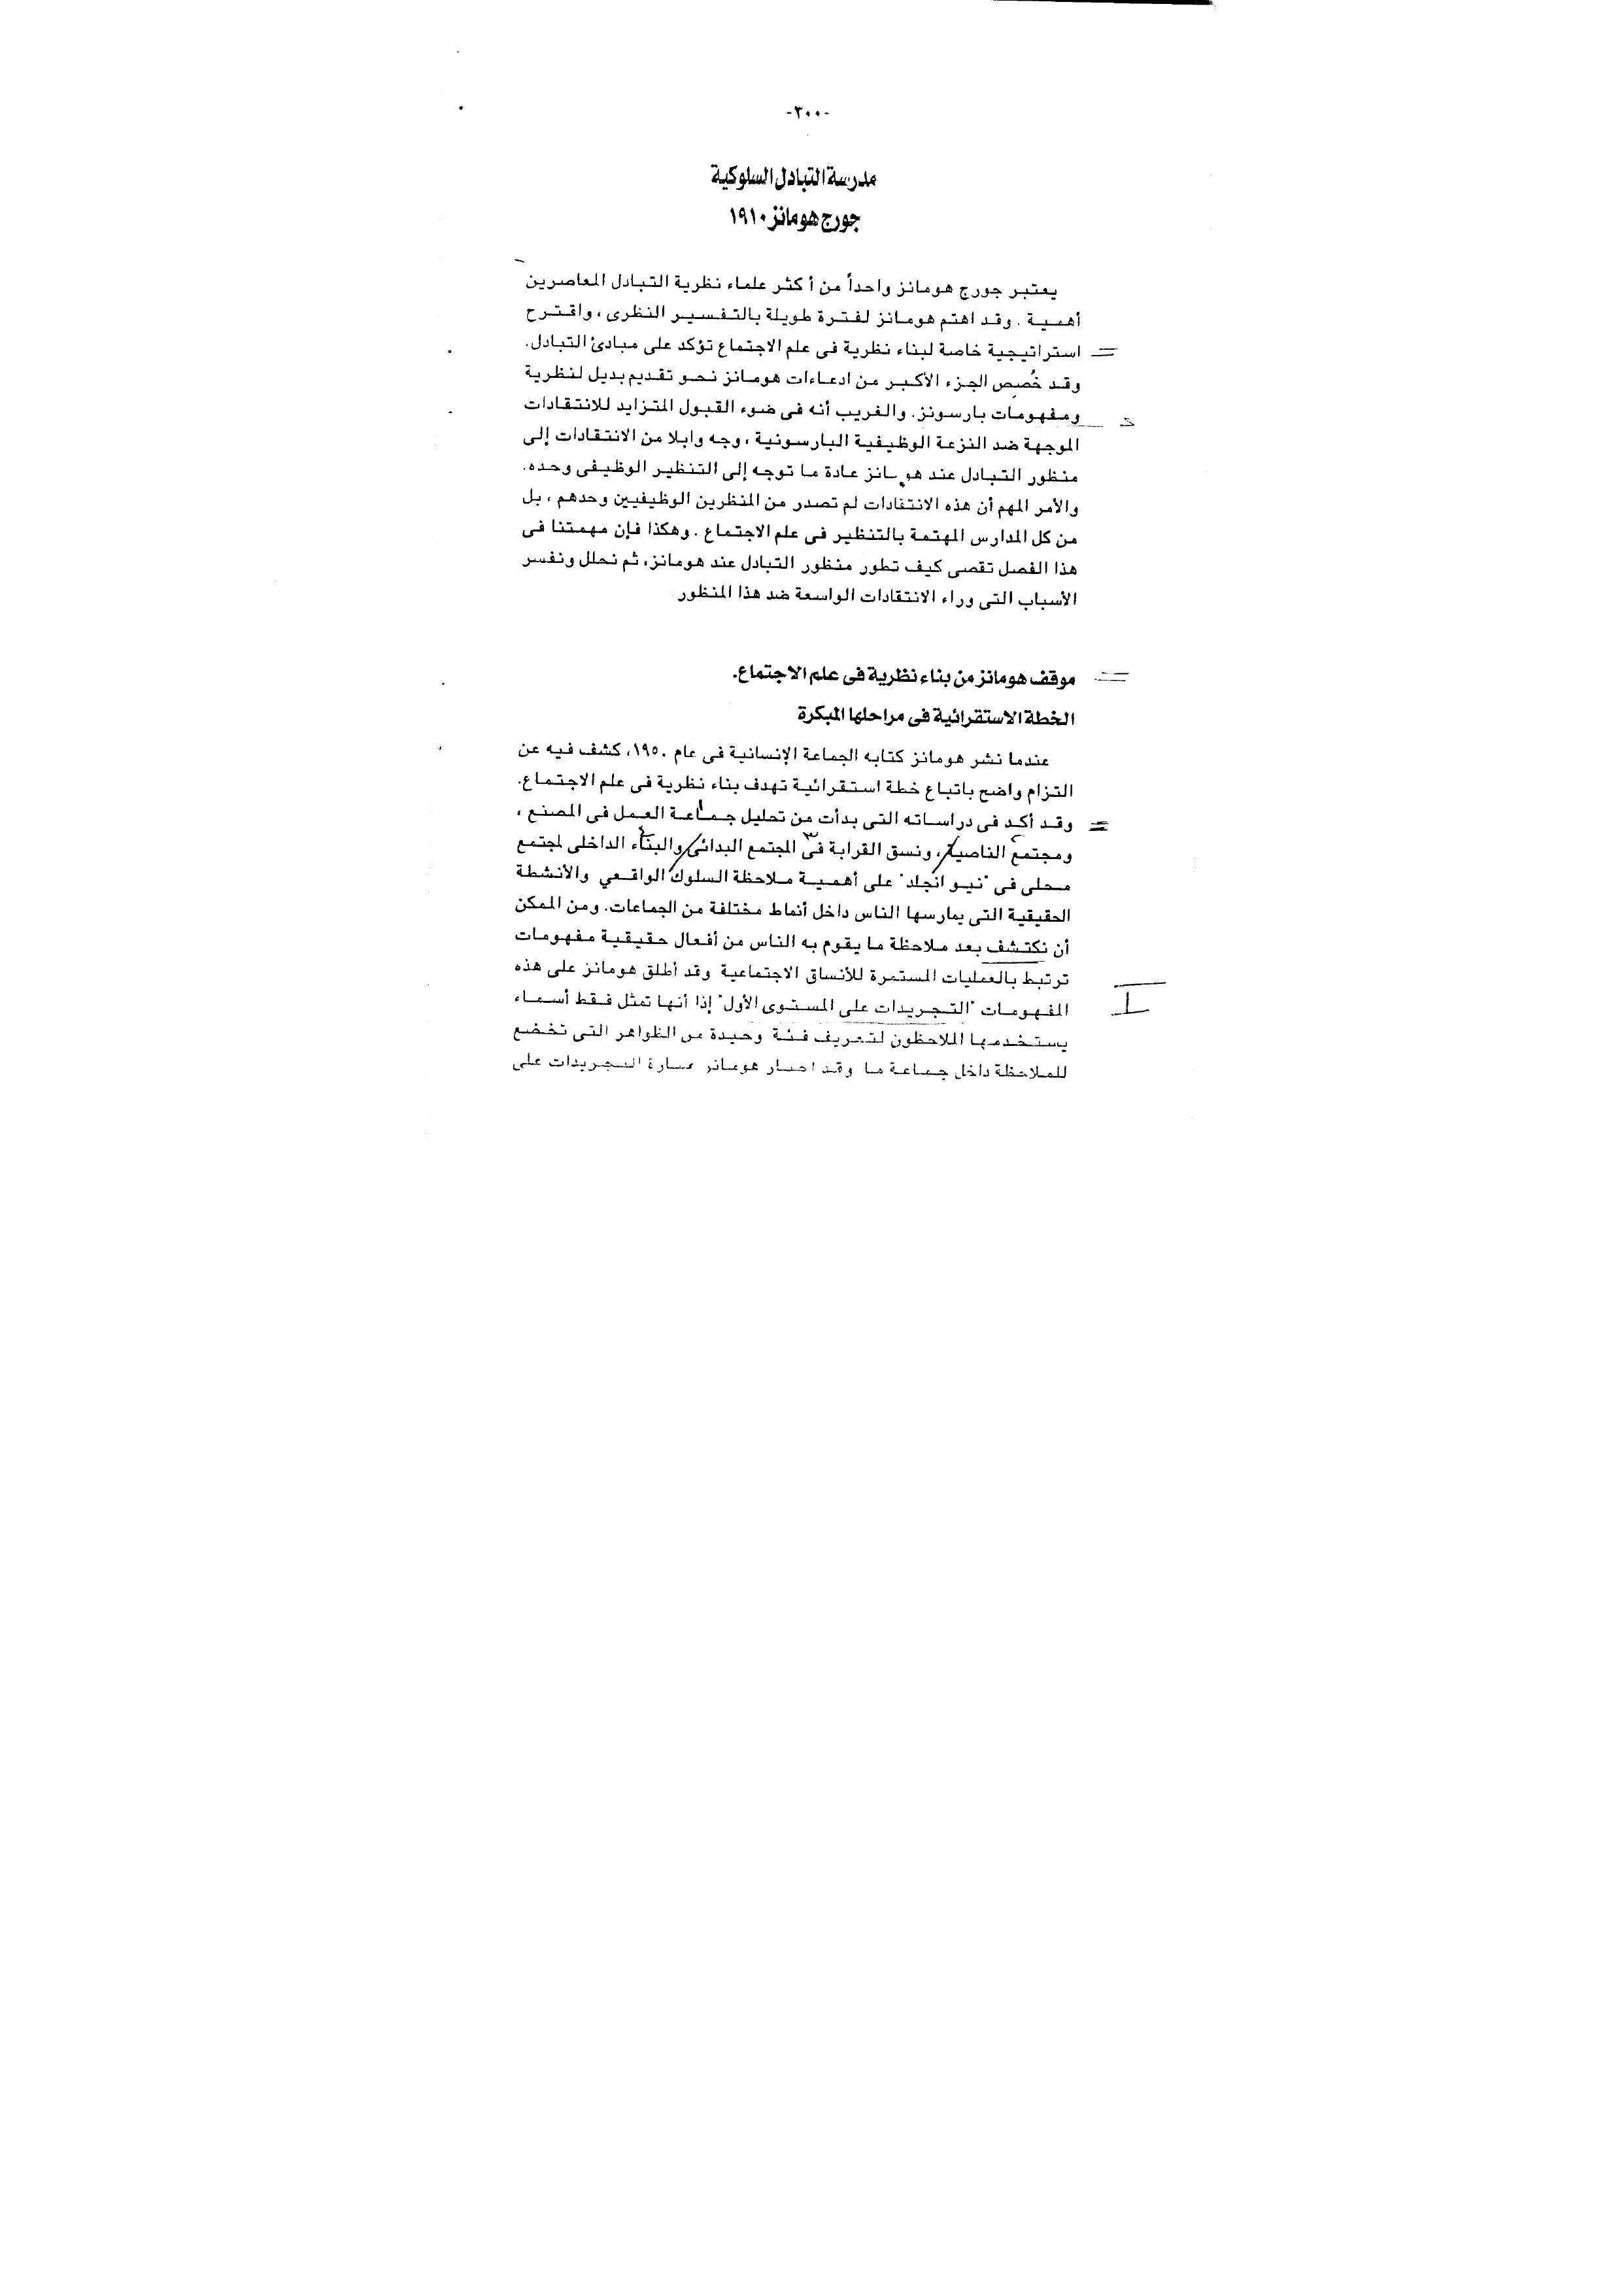 -٣٠٠-
مدرسة التبادل السلوكية
جورج هومانز ١٩١٠
يعتبر جورج هومانز واحداً من أكثر علماء نظرية التبادل المعاصرين
أهمية . وقد اهتم هومانز لفترة طويلة بالتفسير النظرى ، واقترح
استراتيجية خاصة لبناء نظرية فى علم الاجتماع تؤكد على مبادئ التبادل.
وقد خُصص الجزء الأكبر من ادعاءات هومانز نحو تقديم بديل لنظرية
ومفهومات بارسونز. والغريب أنه فى ضوء القبول المتزايد للانتقادات
الموجهة ضد النزعة الوظيفية البارسونية ، وجه وابلا من الانتقادات إلى
منظور التبادل عند هومانز عادة ما توجه إلى التنظير الوظيفى وحده.
والأمر المهم أن هذه الانتقادات لم تصدر من المنظرين الوظيفيين وحدهم ، بل
من كل المدارس المهتمة بالتنظير فى علم الاجتماع . وهكذا فإن مهمتنا فى
هذا الفصل تقصى كيف تطور منظور التبادل عند هومانز، ثم نحلل ونفسر
الأسباب التى وراء الانتقادات الواسعة ضد هذا المنظور
موقف هومانز من بناء نظرية فى علم الاجتماع.
الخطة الاستقرائية فى مراحلها المبكرة
عندما نشر هومانز كتابه الجماعة الإنسانية فى عام ١٩٥٠، كشف فيه عن
التزام واضح باتباع خطة استقرائية تهدف بناء نظرية فى علم الاجتماع.
وقد أكد فى دراساته التى بدأت من تحليل جماعة العمل فى المصنع ،
ومجتمع الناصية، ونسق القرابة فى المجتمع البدائى والبناء الداخلى لمجتمع
محلى فى "نيو انجلد" على أهمية ملاحظة السلوك الواقعي والأنشطة
الحقيقية التى يمارسها الناس داخل أنماط مختلفة من الجماعات. ومن الممكن
أن نكتشف بعد ملاحظة ما يقوم به الناس من أفعال حقيقية مفهومات
ترتبط بالعمليات المستمرة للأنساق الاجتماعية وقد أطلق هومانز على هذه
المفهومات "التجريدات على المستوى الأول" إذا أنها تمثل فقط أسماء
يستخدمها الملاحظون لتعريف فئة وحيدة من الظواهر التى تخضع
للملاحظة داخل جماعة ما وقد هومانز التجريدات على